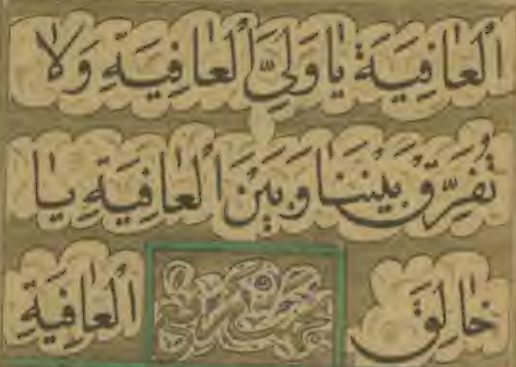 الْعٰافِيَةَ يٰا وَلِيَّ الْعٰافِيَةِ وَلٰا
تُفَرِّقْ بَيْنَنٰا وَبَيْنَ الْعٰافِيَةِ يٰا
خٰالِقَ الْعٰافِيَةِ